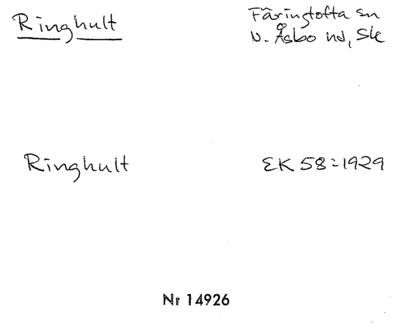 Ringhult
Färingtofta sn
N. Åsbo hd, Sk
Ringhult
EK 58 = 1929
Nr 14926